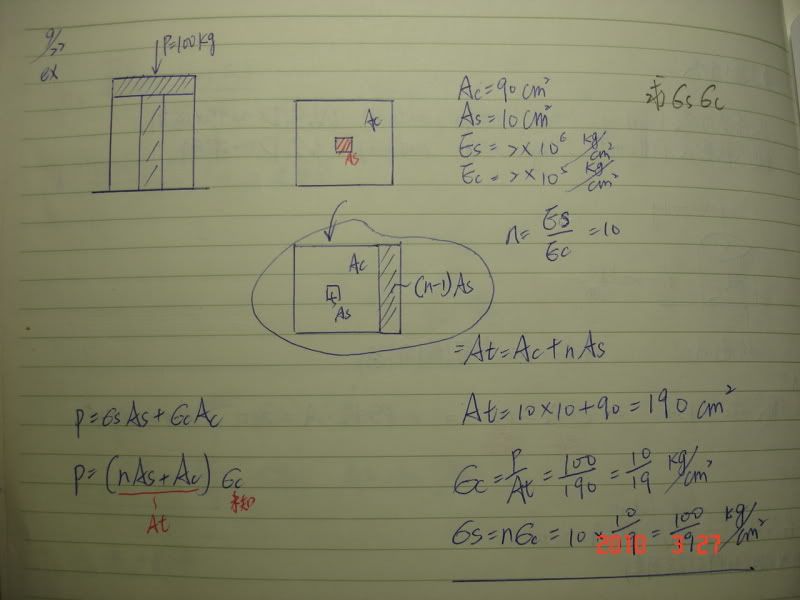 9/22
ex
P=100kg
Ac
As
Ac=90cm²
As=10cm²
Es=2×10⁶ kg/cm²
Ec=2×10⁵ kg/cm²
求 σs σc
n=Es/Ec=10
Ac
As
(n-1)As
=At=Ac+nAs
At=10×10+90=190 cm²
P=σsAs+σcAc
P=(nAs+Ac)σc
At
未知
σc=P/At=100/190=10/19 kg/cm²
σs=nσc=10×10/19=100/19 kg/cm²
2010 3.27